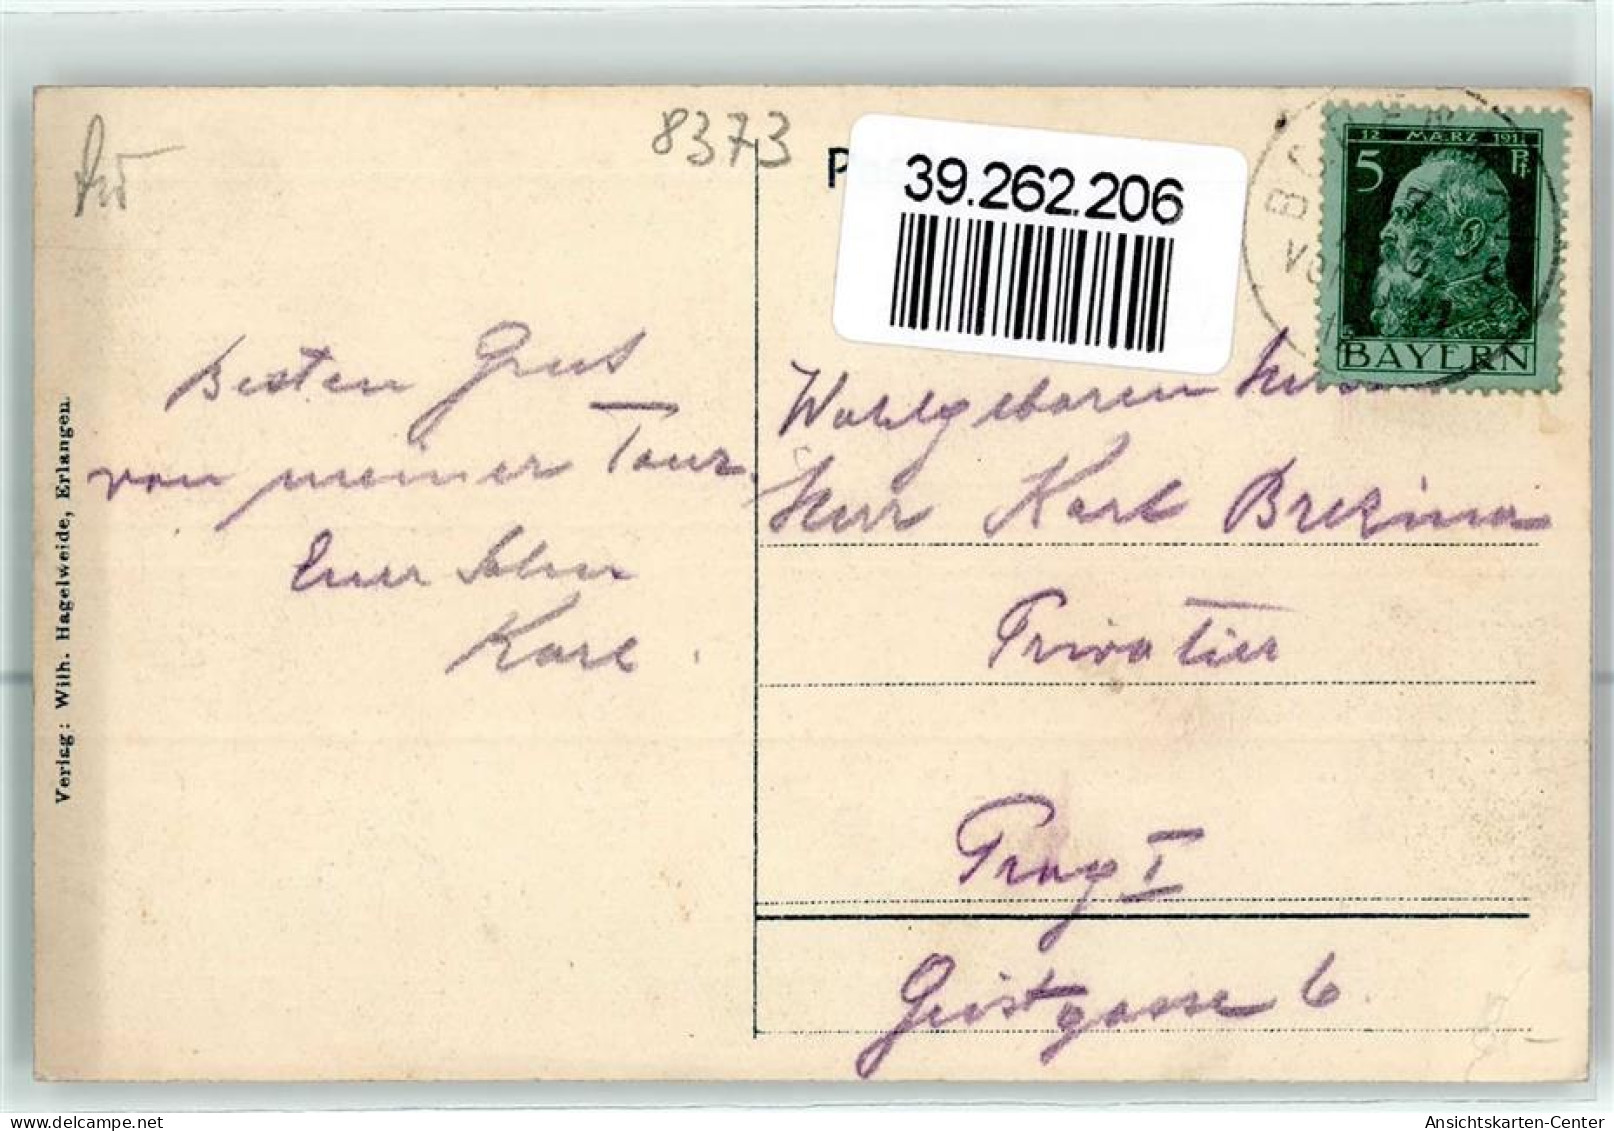 8373
39.262.206
12 MÆRZ 1911
5 Pf
BAYERN
Besten Grus
von meiner Tour.
Euer Sohn
Karl.
Wohlgeboren
Herr Karl Brezina
Privatier
Prag I
Geistgasse 6.
Verlag: Wilh. Hagelweide, Erlangen.
Ansichtskarten-Center